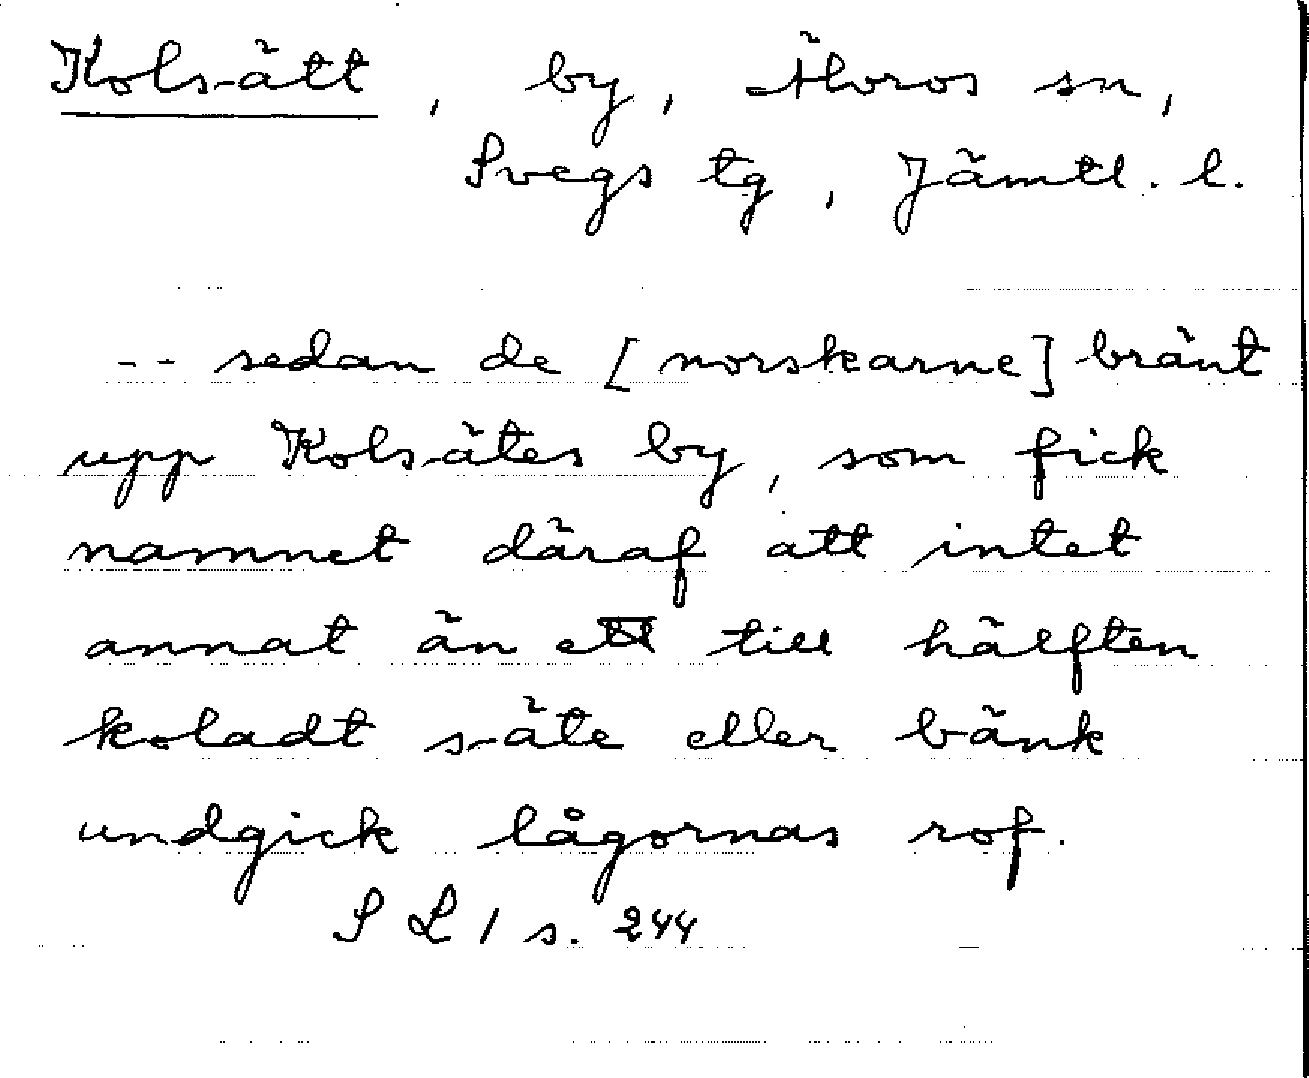 Kolsätt, by, Älvros sn,
Svegs tg, Jämtl. l.
-- sedan de [norskarne] bränt
upp Kolsätes by, som fick
namnet däraf att intet
annat än ett till hälften
koladt säte eller bänk
undgick lågornas rof.
S L 1 s. 244